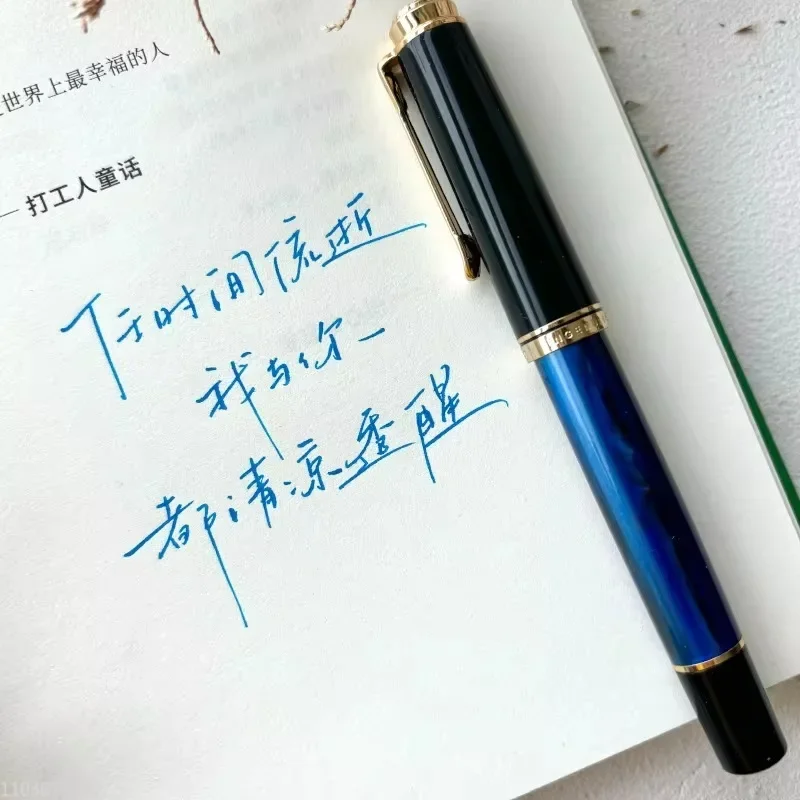 世界上最幸福的人
— 打工人童话
任时间流逝
我与你
都清凉透醒